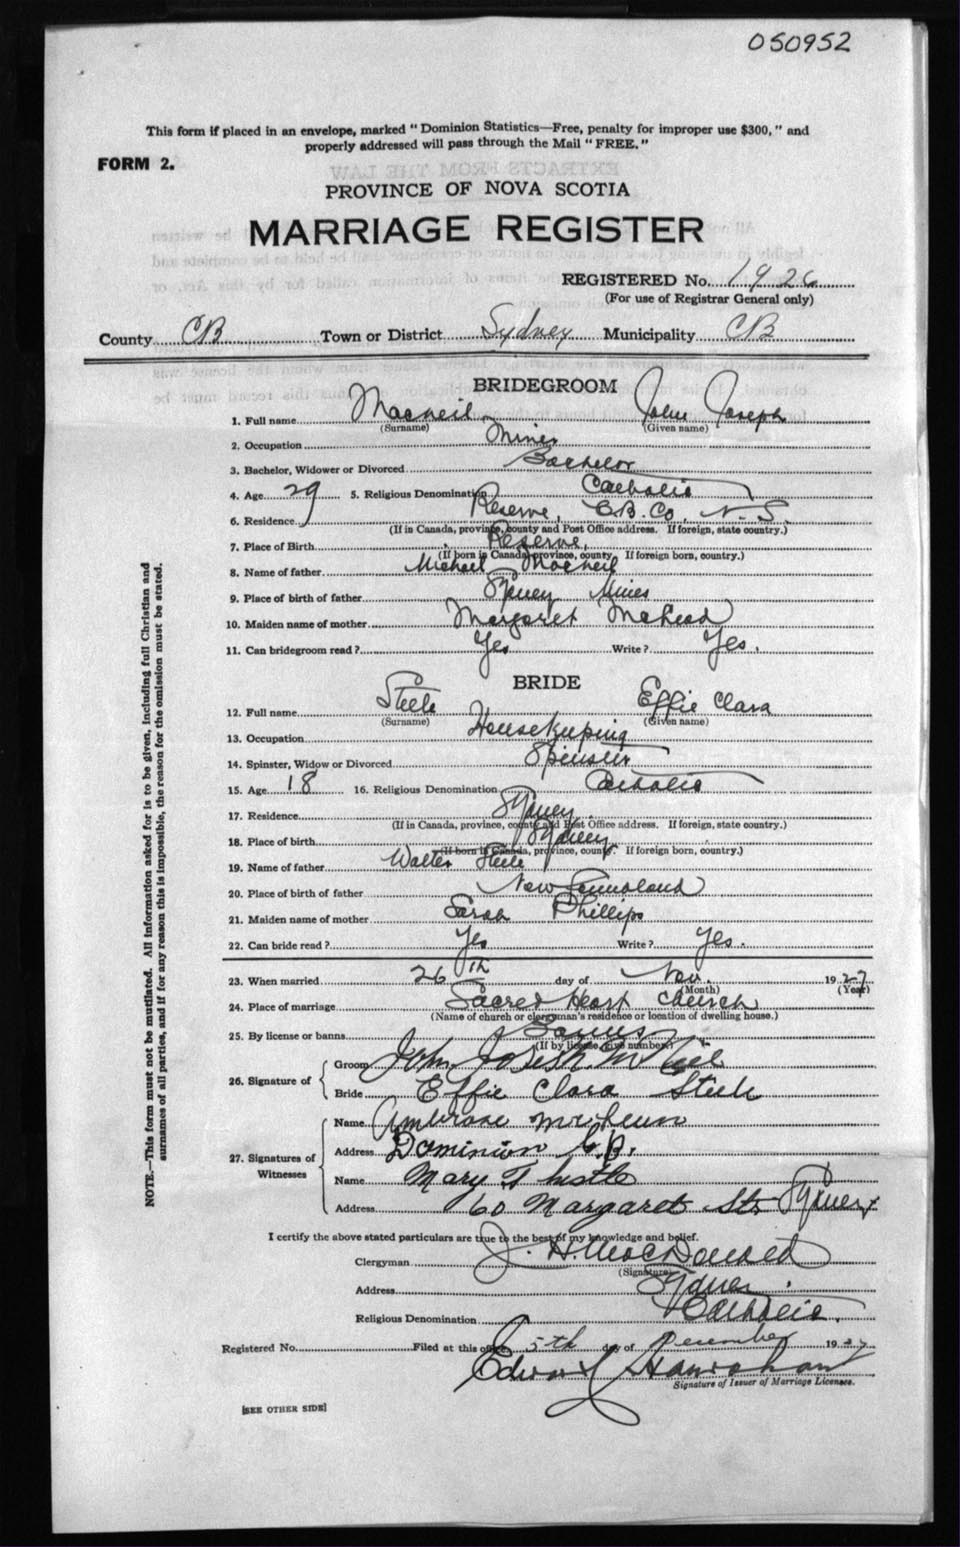 050952
This form if placed in an envelope, marked "Dominion Statistics—Free, penalty for improper use $300," and
properly addressed will pass through the Mail "FREE."
FORM 2.
PROVINCE OF NOVA SCOTIA
MARRIAGE REGISTER
REGISTERED No. 1926
(For use of Registrar General only)
County CB Town or District Sydney Municipality CB
BRIDEGROOM
1. Full name Macneil John Joseph
(Surname) (Given name)
2. Occupation Miner
3. Bachelor, Widower or Divorced Bachelor
4. Age 29 5. Religious Denomination Catholic
6. Residence Reserve, C.B. Co, N.S.
(If in Canada, province, county and Post Office address. If foreign, state country.)
7. Place of Birth Reserve
(If born in Canada, province, county. If foreign born, country.)
8. Name of father Michael Macneil
9. Place of birth of father Sydney Mines
10. Maiden name of mother Margaret McLeod
11. Can bridegroom read? Yes Write? Yes.
BRIDE
12. Full name Steele Effie Clara
(Surname) (Given name)
13. Occupation Housekeeping
14. Spinster, Widow or Divorced Spinster
15. Age 18 16. Religious Denomination Catholic
17. Residence Sydney
(If in Canada, province, county and Post Office address. If foreign, state country.)
18. Place of birth Sydney
(If born in Canada, province, county. If foreign born, country.)
19. Name of father Walter Steele
20. Place of birth of father New Foundland
21. Maiden name of mother Sarah Phillips
22. Can bride read? Yes Write? Yes.
23. When married 26th day of Nov. 1927
(Month) (Year)
24. Place of marriage Sacred Heart Church
(Name of church or clergyman's residence or location of dwelling house.)
25. By license or banns Banns
(If by license, give number)
26. Signature of Groom John Joseph McNeil
Bride Effie Clara Steele
27. Signatures of Witnesses Name Ambrose
Address Dominion C.B.
Name Mary Thistle
Address 60 Margaret St. Sydney
I certify the above stated particulars are true to the best of my knowledge and belief.
Clergyman J. H. MacDonald
(Signature)
Address Sydney.
Religious Denomination Catholic.
Registered No. Filed at this office 5th day of December 1927
Edward Hanrahan
Signature of Issuer of Marriage Licenses.
[SEE OTHER SIDE]
NOTE.—This form must not be mutilated. All information asked for is to be given, including full Christian and
surnames of all parties, and if for any reason this is impossible, the reason for the omission must be stated.